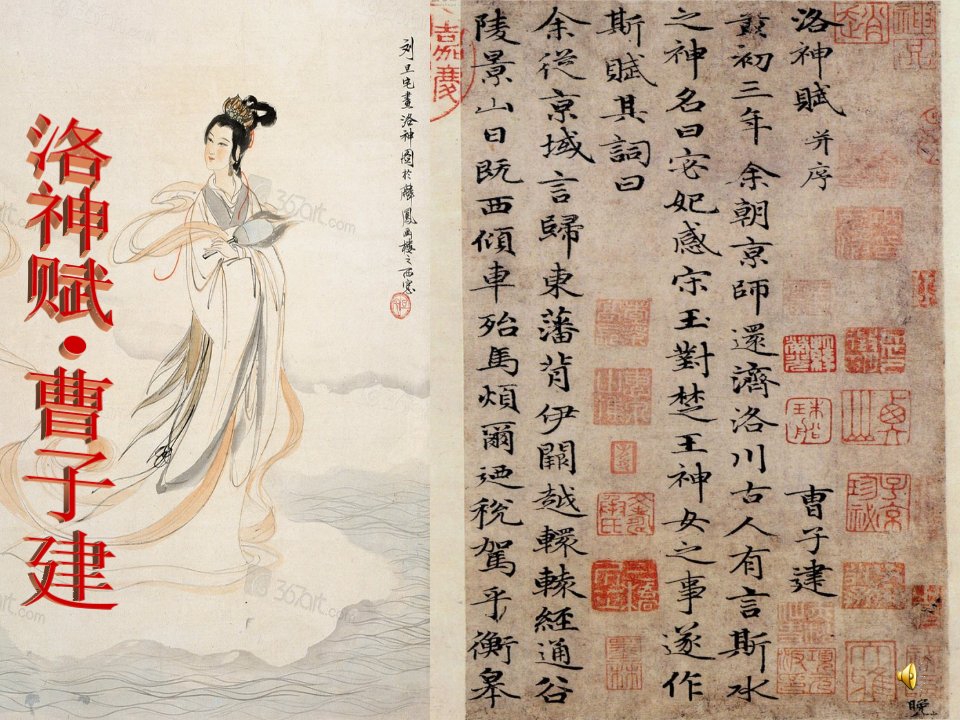 洛神赋·曹子建
刘旦宅畫洛神圖於鳳画樓之西窓
嘉慶
洛神賦 并序 曹子建
黄初三年余朝京師還濟洛川古人有言斯水
之神名曰宓妃感宋玉對楚王神女之事遂作
斯賦其詞曰
余從京域言歸東藩背伊闕越轘轅經通谷
陵景山日既西傾車殆馬煩爾迺稅駕乎衡皋